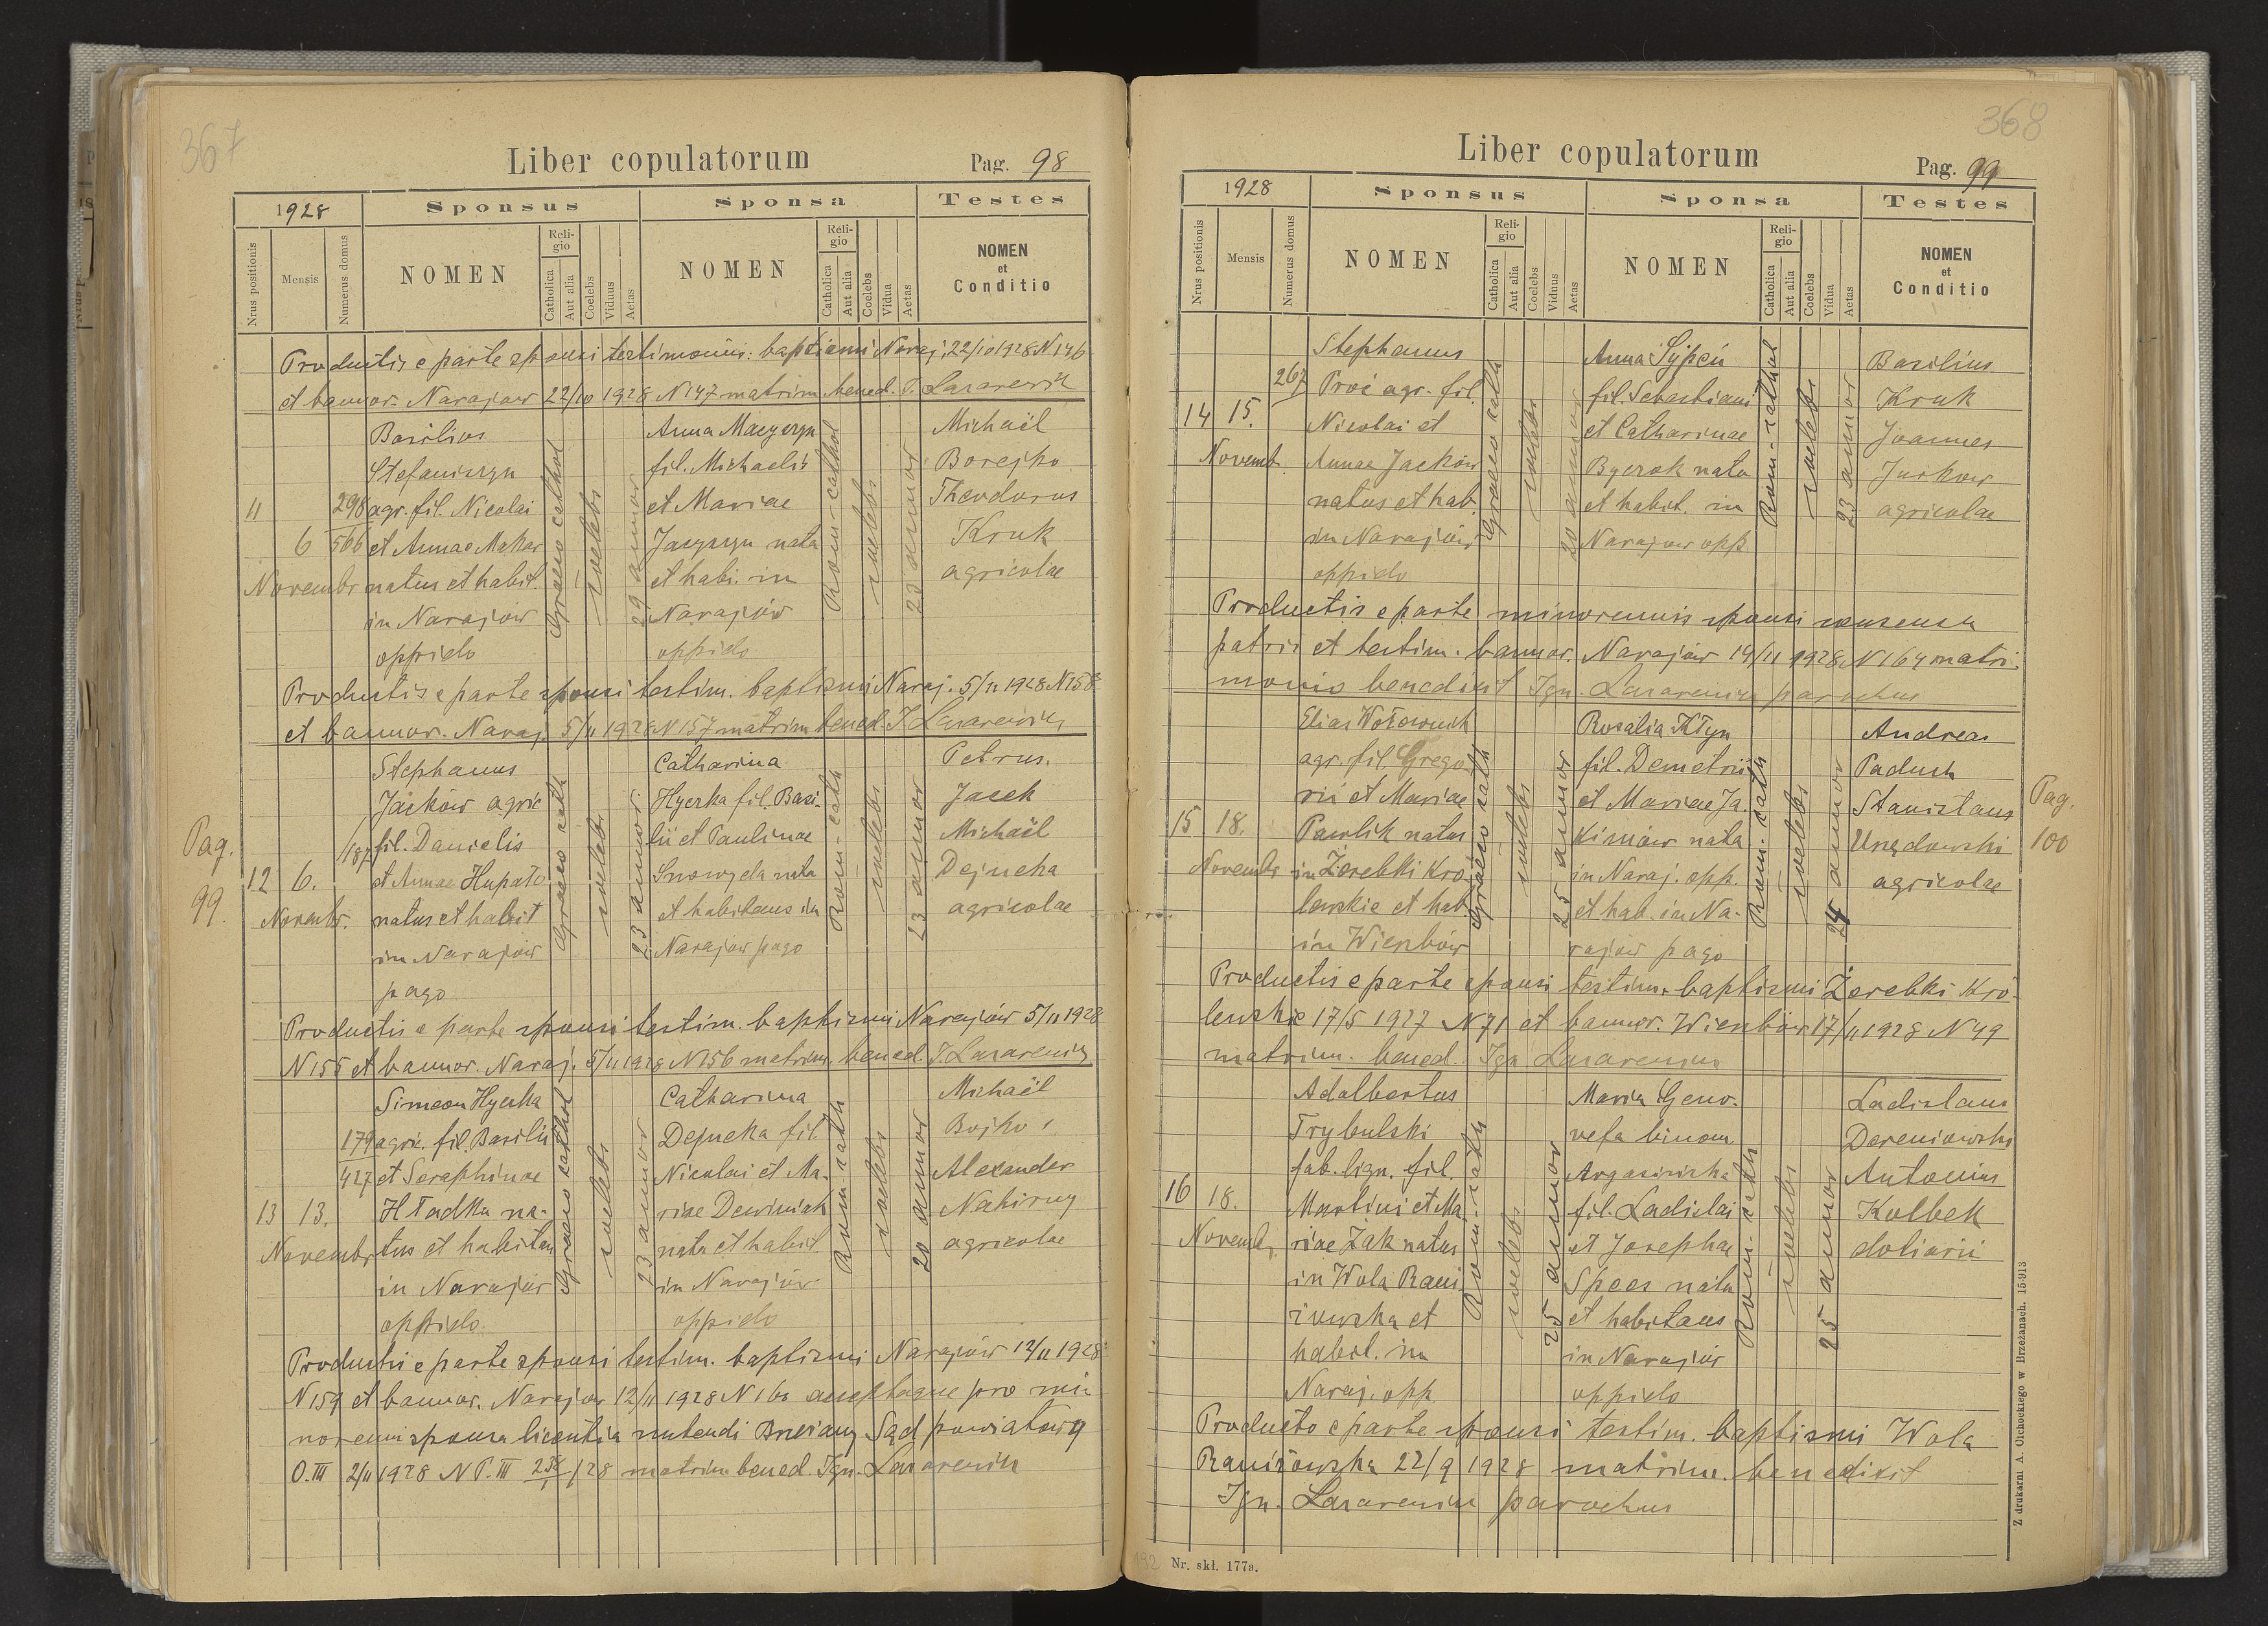 367
Liber copulatorum
Pag. 98
1928
Sponsus
Sponsa
Testes
Nrus positionis
Mensis
Numerus domus
NOMEN
Religio
Catholica
Aut alia
Coelebs
Viduus
Aetas
NOMEN
Religio
Catholica
Aut alia
Coelebs
Vidua
Aetas
NOMEN
et
Conditio
Productis e parte sponsi testimoniis: baptismi Naraj. 22/10 1928 N 146
et bannor. Narajow 22/10 1928 N 147 matrim. bened. I. Lazarewicz
11
6
Novembr
298
506
Basilius
Stefaniszyn
agr. fil. Nicolai
et Annae Makar
natus et habit.
in Narajow
oppido
Graeco cathol
coelebs
29 annor
Anna
fil. Michaelis
et Mariae
nata
et habi. in
Narajów
oppido
Rom-cathol
coelebs
23 annor
Michaël
Borejko
Theodorus
Kruk
agricolae
Productis e parte sponsi testim. baptismi Naraj. 5/11 1928 N 158
et bannor. Naraj. 5/11 1928 N 157 matrim bened. I. Lazarewicz
Pag.
99.
12
6.
Novembr.
187
Stephanus
Jaśków agric
fil. Danielis
et Annae Hupało
natus et habit
in Narajów
pago
Graeco cath
coelebs
23 annor
Catharina
Hyczka fil. Basi-
lii et Paulinae
nata
et habitans in
Narajow pago
Rom-cath
coelebs
23 annor
Petrus
Jacek
Michaël
Dejneka
agricolae
Productis e parte sponsi testim. baptismi Narajów 5/11 1928
N 155 et bannor. Naraj. 5/11 1928 N 156 matrim. bened. I. Lazarewicz
13
13.
Novembr
179
427
Simeon Hyczka
agric. fil. Basilii
et Seraphinae
Hładka na-
tus et habitan
in Narajów
oppido.
Graeco cathol
coelebs
23 annor
Catharina
Dejneka fil.
Nicolai et Ma-
riae
nata et habit.
in Narajów
oppido
Rom-cath
coelebs
20 annor
Michaël
Bojko
Alexander
Nahirny
agricolae
Productis e parte sponsi testim. baptismi Narajów 12/11 1928
N 159 et bannor. Narajow 12/11 1928 N 160 acceptaque pro mi-
norenni sponsa licentia nubendi Brzeżany Sąd powiatowy
O. III 2/11 1928 N P. III /28 matrim bened. Ign. Lazarewicz
368
Liber copulatorum
Pag. 99
1928
Sponsus
Sponsa
Testes
Nrus positionis
Mensis
Numerus domus
NOMEN
Religio
Catholica
Aut alia
Coelebs
Viduus
Aetas
NOMEN
Religio
Catholica
Aut alia
Coelebs
Vidua
Aetas
NOMEN
et
Conditio
14
15.
Novemb.
267
Stephanus
agr. fil.
Nicolai et
Annae Jacków
natus et hab.
in Narajów
oppido
Graeco cath
coelebs
20 annor
Anna Sypeń
fil. Sebastiani
et Catharinae
nata
et habit. in
Narajow opp.
Rom-cathol
coelebs
23 annor
Basilius
Kruk
Joannes
Juśkow
agricolae
Productis e parte minorennis sponsi consensu
patris et testim. bannor. Narajów 14/11 1928 N 164 matri-
monio benedixit Ign. Lazarewicz parochus
15
18.
Novembr
Elias
agr. fil. Grego-
rii et Mariae
Pawlik natus
in Żerebki Kró-
lewskie et hab.
in Wierzbów
Graeco cath
coelebs
25 annor
Rosalia Kłyn
fil. Demetrii
et Mariae Ja-
kimów nata
in Naraj. opp.
et hab. in Na-
rajów pago
Rom. cath
coelebs
24 annor
Andreas
Paduch
Stanislaus
Urzędowski
agricolae
Pag.
100
Productis e parte sponsi testim. baptismi Żerebki Kró-
lewskie 17/5 1927 N 71 et bannor. Wierzbów 17/11 1928 N 49
matrim. bened. Ign Lazarewicz
16
18.
Novemb.
Adalbertus
Trybulski
fab. lign. fil.
Martini et Ma-
riae Żak natus
in Wola Rani-
żowska et
habit. in
Naraj. opp.
Rom-cath
coelebs
25 annor
Maria Geno-
vefa binom.
Argasińska
fil. Ladislai
et Josephae
Spees nata
et habitans
in Narajów
oppido
Rom-cath
coelebs
25 annor
Ladislaus
Dereniowski
Antonius
Kolbek
doliarii
Producto e parte sponsi testim. baptismi Wola
Raniżowska 22/9 1928 matrim. benedixit
Ign. Lazarewicz parochus
Z drukarni A. Cichockiego w Brzeżanach. 15913
192
Nr. skł. 177a.